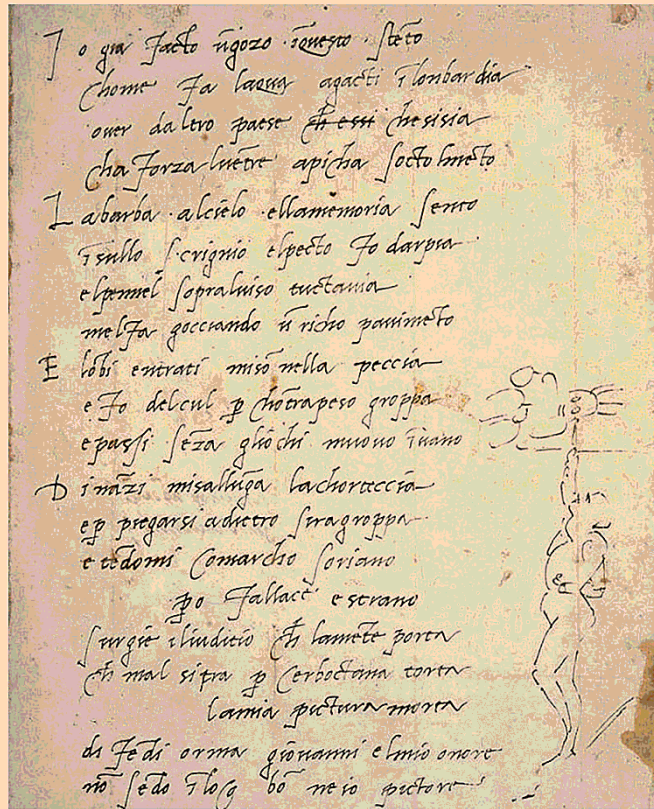 Io gia facto ūgozo īquesto stēto
chome fa laqua agacti ī lonbardia
over daltro paese ch̄ essi chesisia
cha forza lvētre apicha socto lmēto
La barba alcielo ellamemoria sento
īsullo scrignio elpecto fo darpia
elpennel sopralviso tuctavia
melfa gocciando ū richo pavimēto
E lobi entrati misō nella peccia
e fo delcul p̄ chōtrapeso groppa
epassi sēza gliochi muovo īvano
D ināzi misallūga lachorteccia
ep̄ piegarsi adietro siragroppa
e tēdomi comarcho soriano
p̄o fallace e strano
surgie iliuditio ch̄ lamēte porta
ch̄ mal sitra p̄ cerboctana torta
lamia pictura morta
di fēdi orma giovanni elmio onore
nō sēdo īlog bō neio pictore